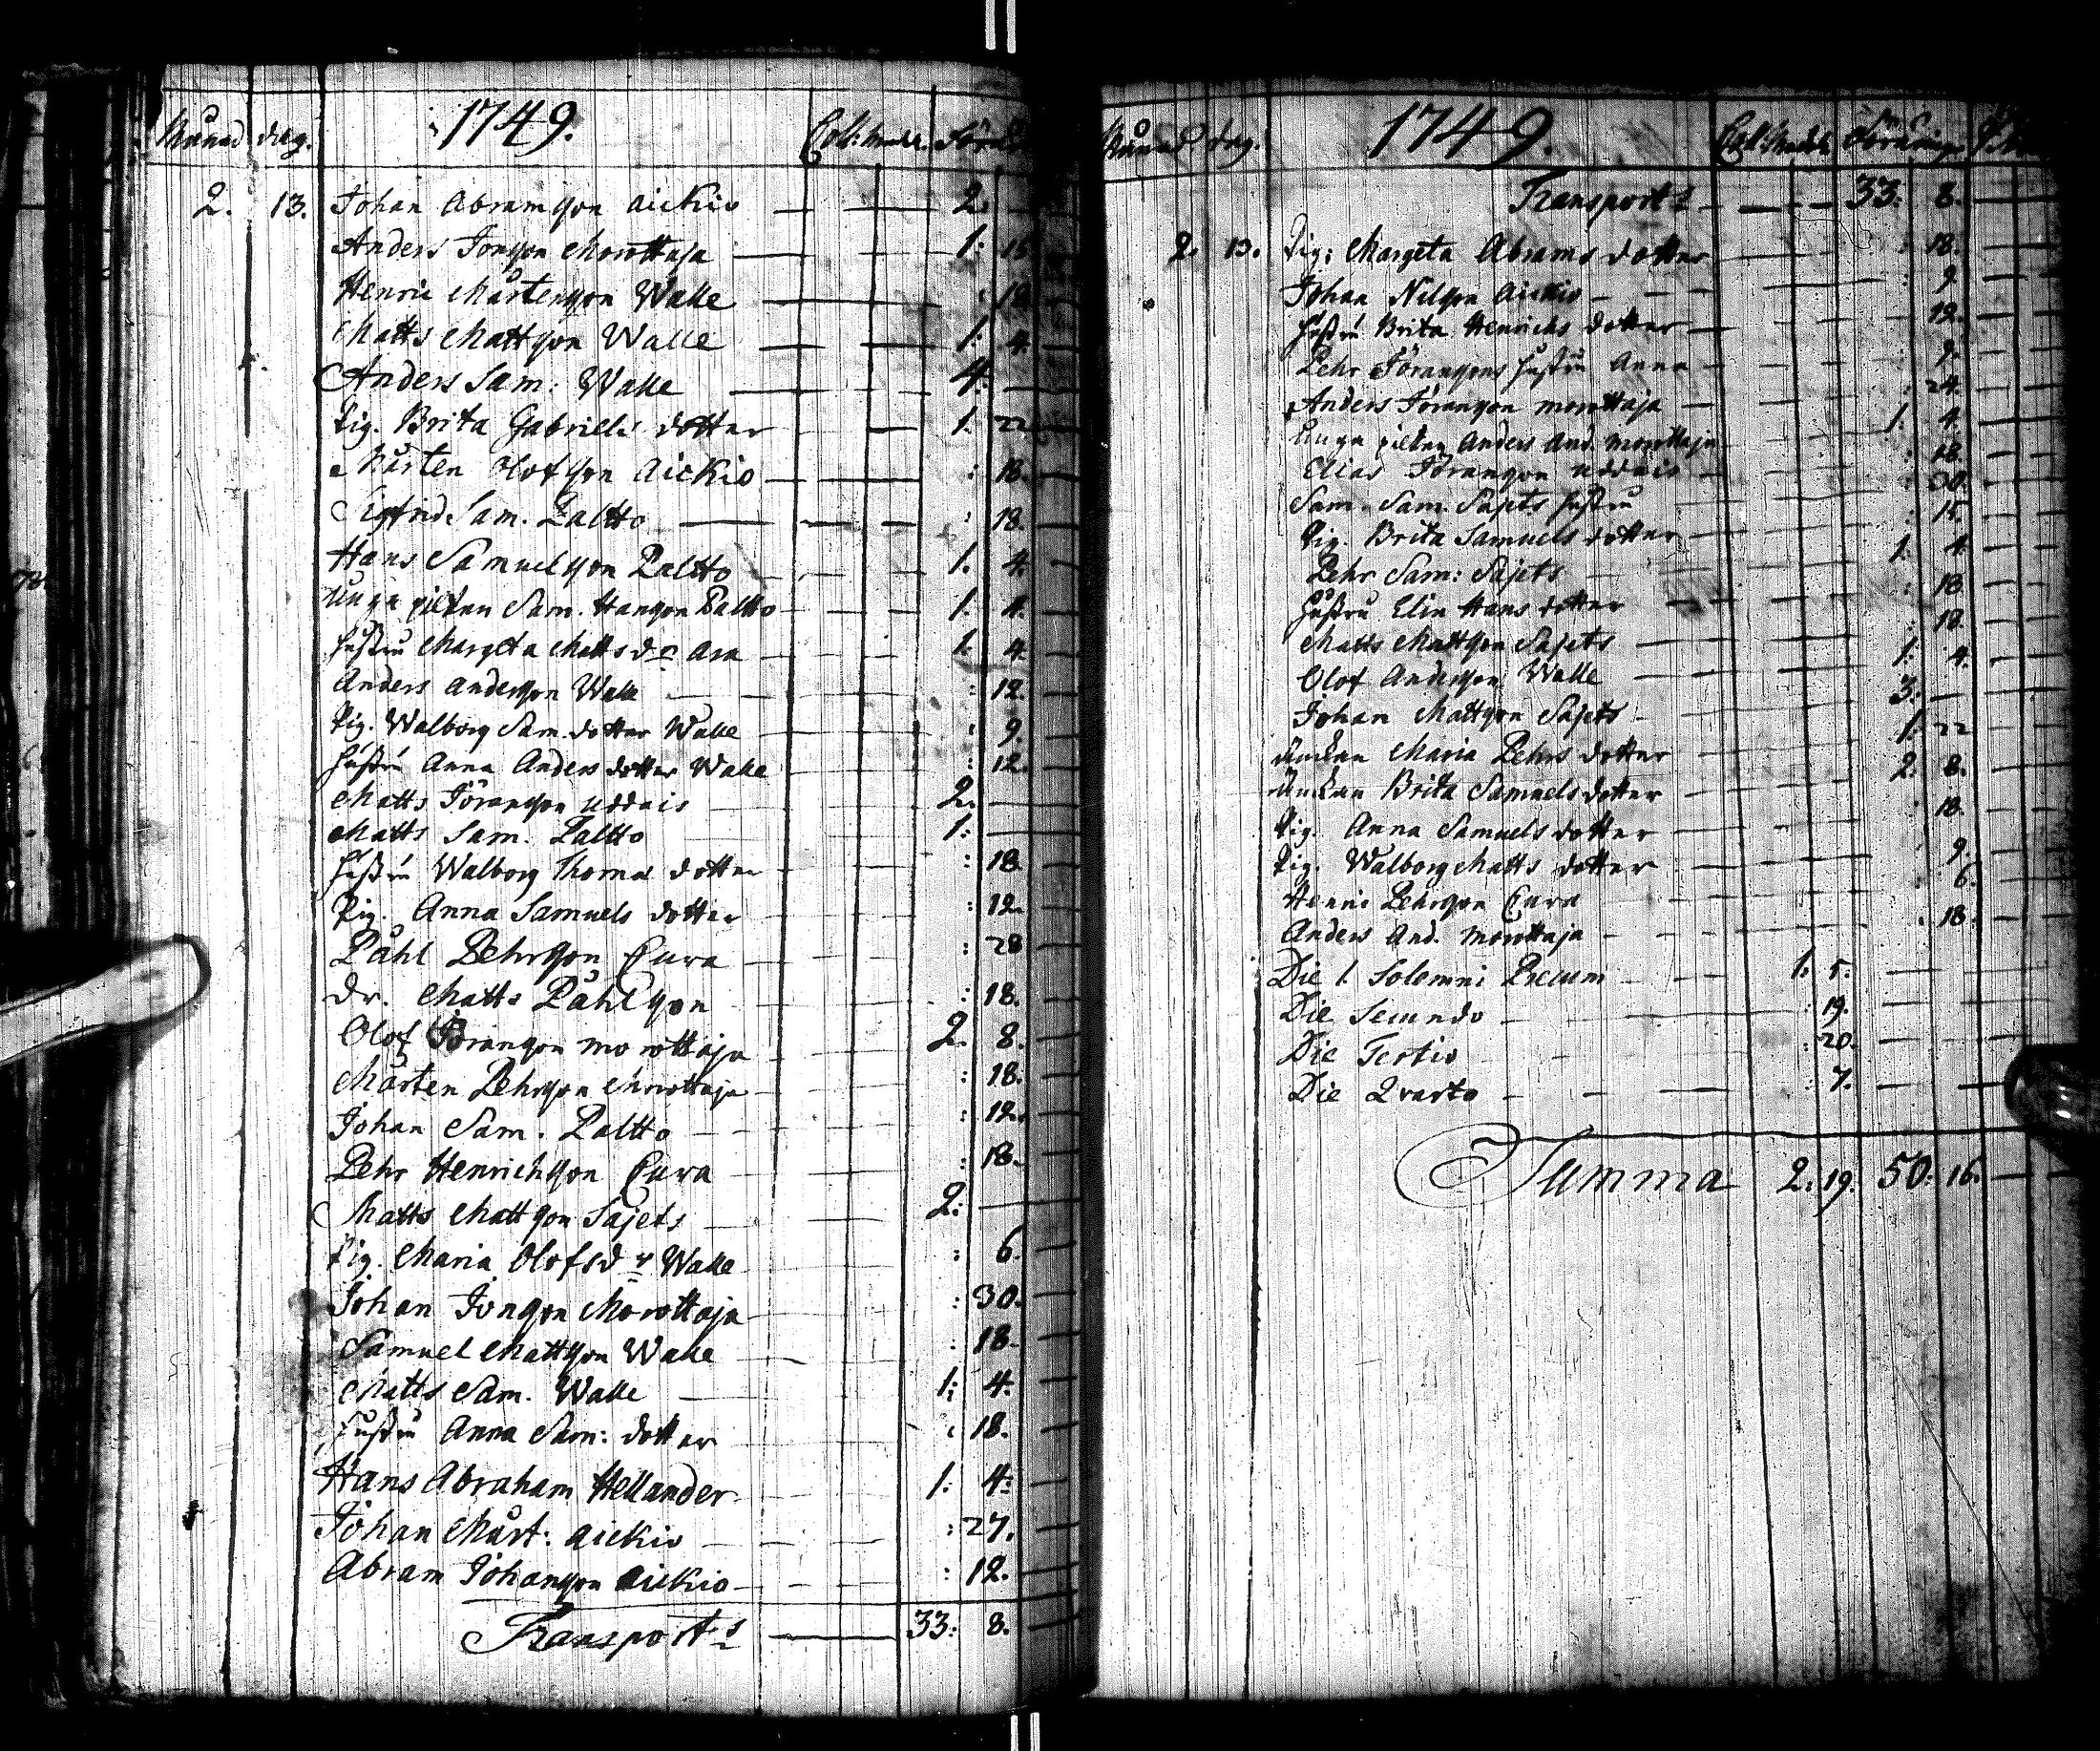 Månad dag. 1749. Coll: medl. Föräri
2. 13. Johan Abramsson Aickio 2.
Anders Jonsson Morottaja 1: 15
Henric Mårtensson Walle : 18
Matts Mattsson Walle 1: 4.
Anders Sam: Walle 4.
Pig. Brita Gabriels dotter 1. 22
Mårten Olofsson Aickio : 18.
Sigfrid Sam. Paltto : 18.
Hans Samuelsson Paltto 1. 4.
Unga pilten Sam. Hansson Paltto 1. 4.
Hustru Margeta Matts dr Ara 1. 4.
Anders Andersson Walle : 12.
Pig. Walborg Sam. dotter Walle : 9.
Hustru Anna Anders dotter Walle : 12.
Matts Jöransson Uddais 2.
Matts Sam. Paltto 1:
Hustru Walborg Thomas dotter : 18.
Pig. Anna Samuels dotter : 12.
Påhl Pehrsson Cura : 28
Dr. Matts Påhlsson : 18.
Olof Jöransson Morottaja 2. 8.
Mårten Pehrsson Morottaja : 18.
Johan Sam. Paltto : 12.
Pehr Henrichsson Cura : 18.
Matts Mattsson Sajets 2:
Pig. Maria Olofsdr Walle : 6.
Johan Jonsson Morottaja : 30.
Samuel Mattsson Walle : 18.
Matts Sam. Walle 1: 4.
Hustru Anna Sam: dotter : 18.
Hans Abraham Hellander 1: 4:
Johan Mårt: Aickio : 27.
Abram Johansson Aickio : 12.
Transport 33: 8.
Månad dag. 1749. Coll: Medel
Transport 33: 8.
2. 13. Pig: Margeta Abrams dotter : 18.
Johan Nilsson Aickio : 9
Hustru Brita Henrichs dotter : 12.
Pehr Jöranssons Hustru Anna : 9.
Anders Jöransson Morottaja : 24.
Unga pilten Anders And. Morottaja 1. 4.
Elias Jöransson Uddais : 18.
Sam. Sam. Sajets Hustru : 30.
Pig. Brita Samuels dotter : 15.
Pehr Sam: Sajets 1. 4
Hustru Elin Hans dotter : 18
Matts Mattsson Sajets : 18.
Olof Andersson Walle 1: 4.
Johan Mattsson Sajets 3:
Änckan Maria Pehrs dotter 1: 22
Änckan Brita Samuels dotter 2. 8.
Pig. Anna Samuels dotter : 18.
Pig. Walborg Matts dotter : 9.
Henric Pehrsson Cura : 6.
Anders And. Morottaja : 18.
Die 1. Solemni Precum 1. 5.
Die Secundo : 19.
Die Tertio : 20.
Die Qvarto : 7.
Summa 2. 19. 50: 16.